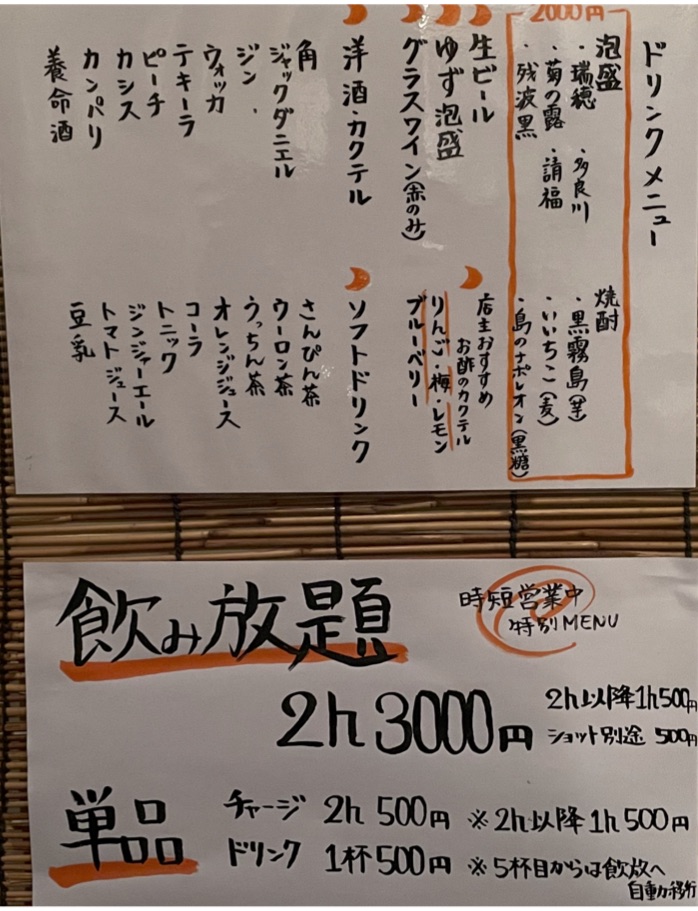 ドリンクメニュー
2000円
泡盛
・瑞穂 ・多良川
・菊の露 ・請福
・残波黒
焼酎
・黒霧島(芋)
・いいちこ(麦)
・島のナポレオン(黒糖)
生ビール
ゆず泡盛
グラスワイン(赤のみ)
店主おすすめ
お酢のカクテル
りんご・梅・レモン
ブルーベリー
洋酒・カクテル
角
ジャックダニエル
ジン
ウォッカ
テキーラ
ピーチ
カシス
カンパリ
養命酒
ソフトドリンク
さんぴん茶
ウーロン茶
うっちん茶
オレンジジュース
コーラ
トニック
ジンジャーエール
トマトジュース
豆乳
飲み放題
時短営業中
特別MENU
2h 3000円
2h以降1h500円
ショット別途 500円
単品
チャージ 2h 500円 ※2h以降1h500円
ドリンク 1杯500円 ※5杯目からは飲放へ
自動移行